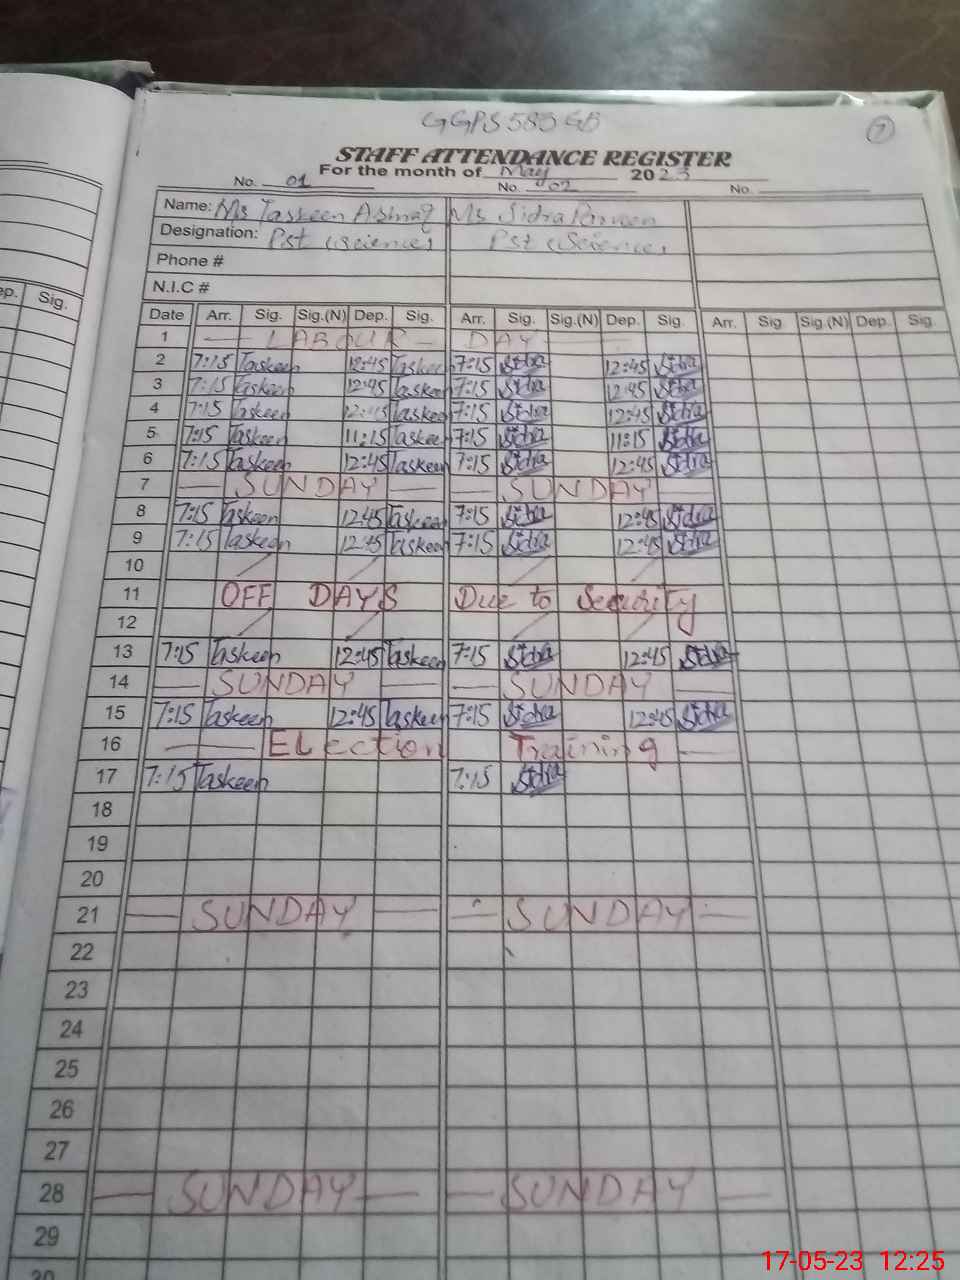 GGPS 580 GB
7
STAFF ATTENDANCE REGISTER
For the month of May 2023
No. 01 No. 02 No.
Name: Ms Taskeen Ashraf Ms Sidra Parveen
Designation: Pst (science) Pst (Science)
Phone #
N.I.C #
ep. Sig.
Date Arr. Sig. Sig.(N) Dep. Sig. Arr. Sig. Sig.(N) Dep. Sig. Arr. Sig. Sig.(N) Dep. Sig.
1 LABOUR DAY
2 7:15 Taskeen 12:45 Taskeen 7:15 Sidra 12:45 Sidra
3 7:15 Taskeen 12:45 Taskeen 7:15 Sidra 12:45 Sidra
4 7:15 Taskeen 12:45 Taskeen 7:15 Sidra 12:45 Sidra
5 7:15 Taskeen 11:15 Taskeen 7:15 Sidra 11:15 Sidra
6 7:15 Taskeen 12:45 Taskeen 7:15 Sidra 12:45 Sidra
7 SUNDAY SUNDAY
8 7:15 Taskeen 12:45 Taskeen 7:15 Sidra 12:45 Sidra
9 7:15 Taskeen 12:45 Taskeen 7:15 Sidra 12:45 Sidra
10
11 OFF DAYS Due to Security
12
13 7:15 Taskeen 12:45 Taskeen 7:15 Sidra 12:45 Sidra
14 SUNDAY SUNDAY
15 7:15 Taskeen 12:45 Taskeen 7:15 Sidra 12:45 Sidra
16 ELection Training
17 7:15 Taskeen 7:15 Sidra
18
19
20
21 SUNDAY SUNDAY
22
23
24
25
26
27
28 SUNDAY SUNDAY
29
30
17-05-23 12:25